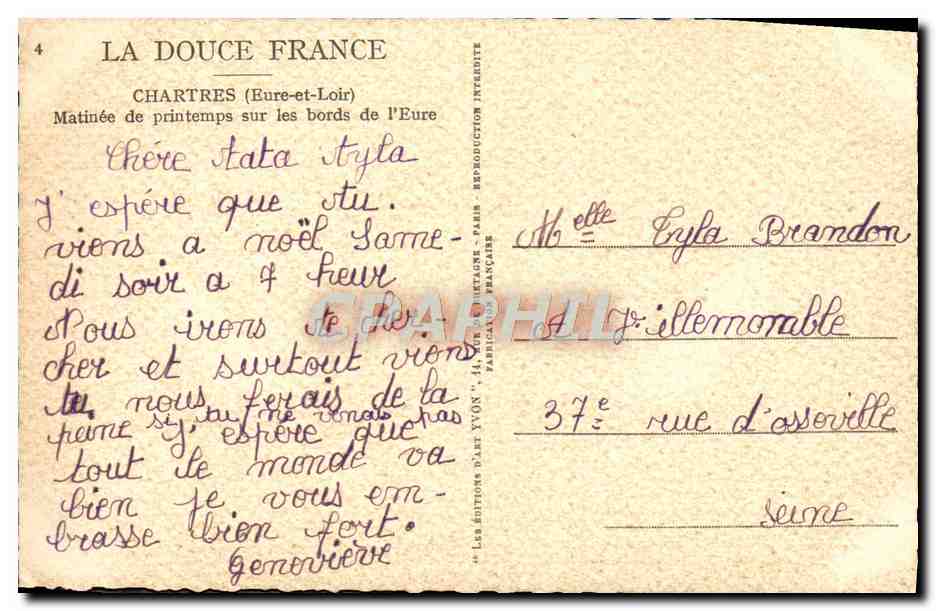 4
LA DOUCE FRANCE
CHARTRES (Eure-et-Loir)
Matinée de printemps sur les bords de l'Eure
Chére tata Tyla
J' espére que tu.
viens a noël Same-
di soir a 7 heur
Nous irons te cher-
cher et surtout viens
tu nous ferais de la
peine si tu ne venais pas
J' espère que
tout le monde va
bien je vous em-
brasse bien fort.
Geneviève
" LES ÉDITIONS D'ART YVON ", 14, RUE DE BRETAGNE - PARIS - REPRODUCTION INTERDITE
FABRICATION FRANÇAISE
Melle Tyla Brandon
A Villemomable
37e rue d'assoville
Seine
CPARAPHIL